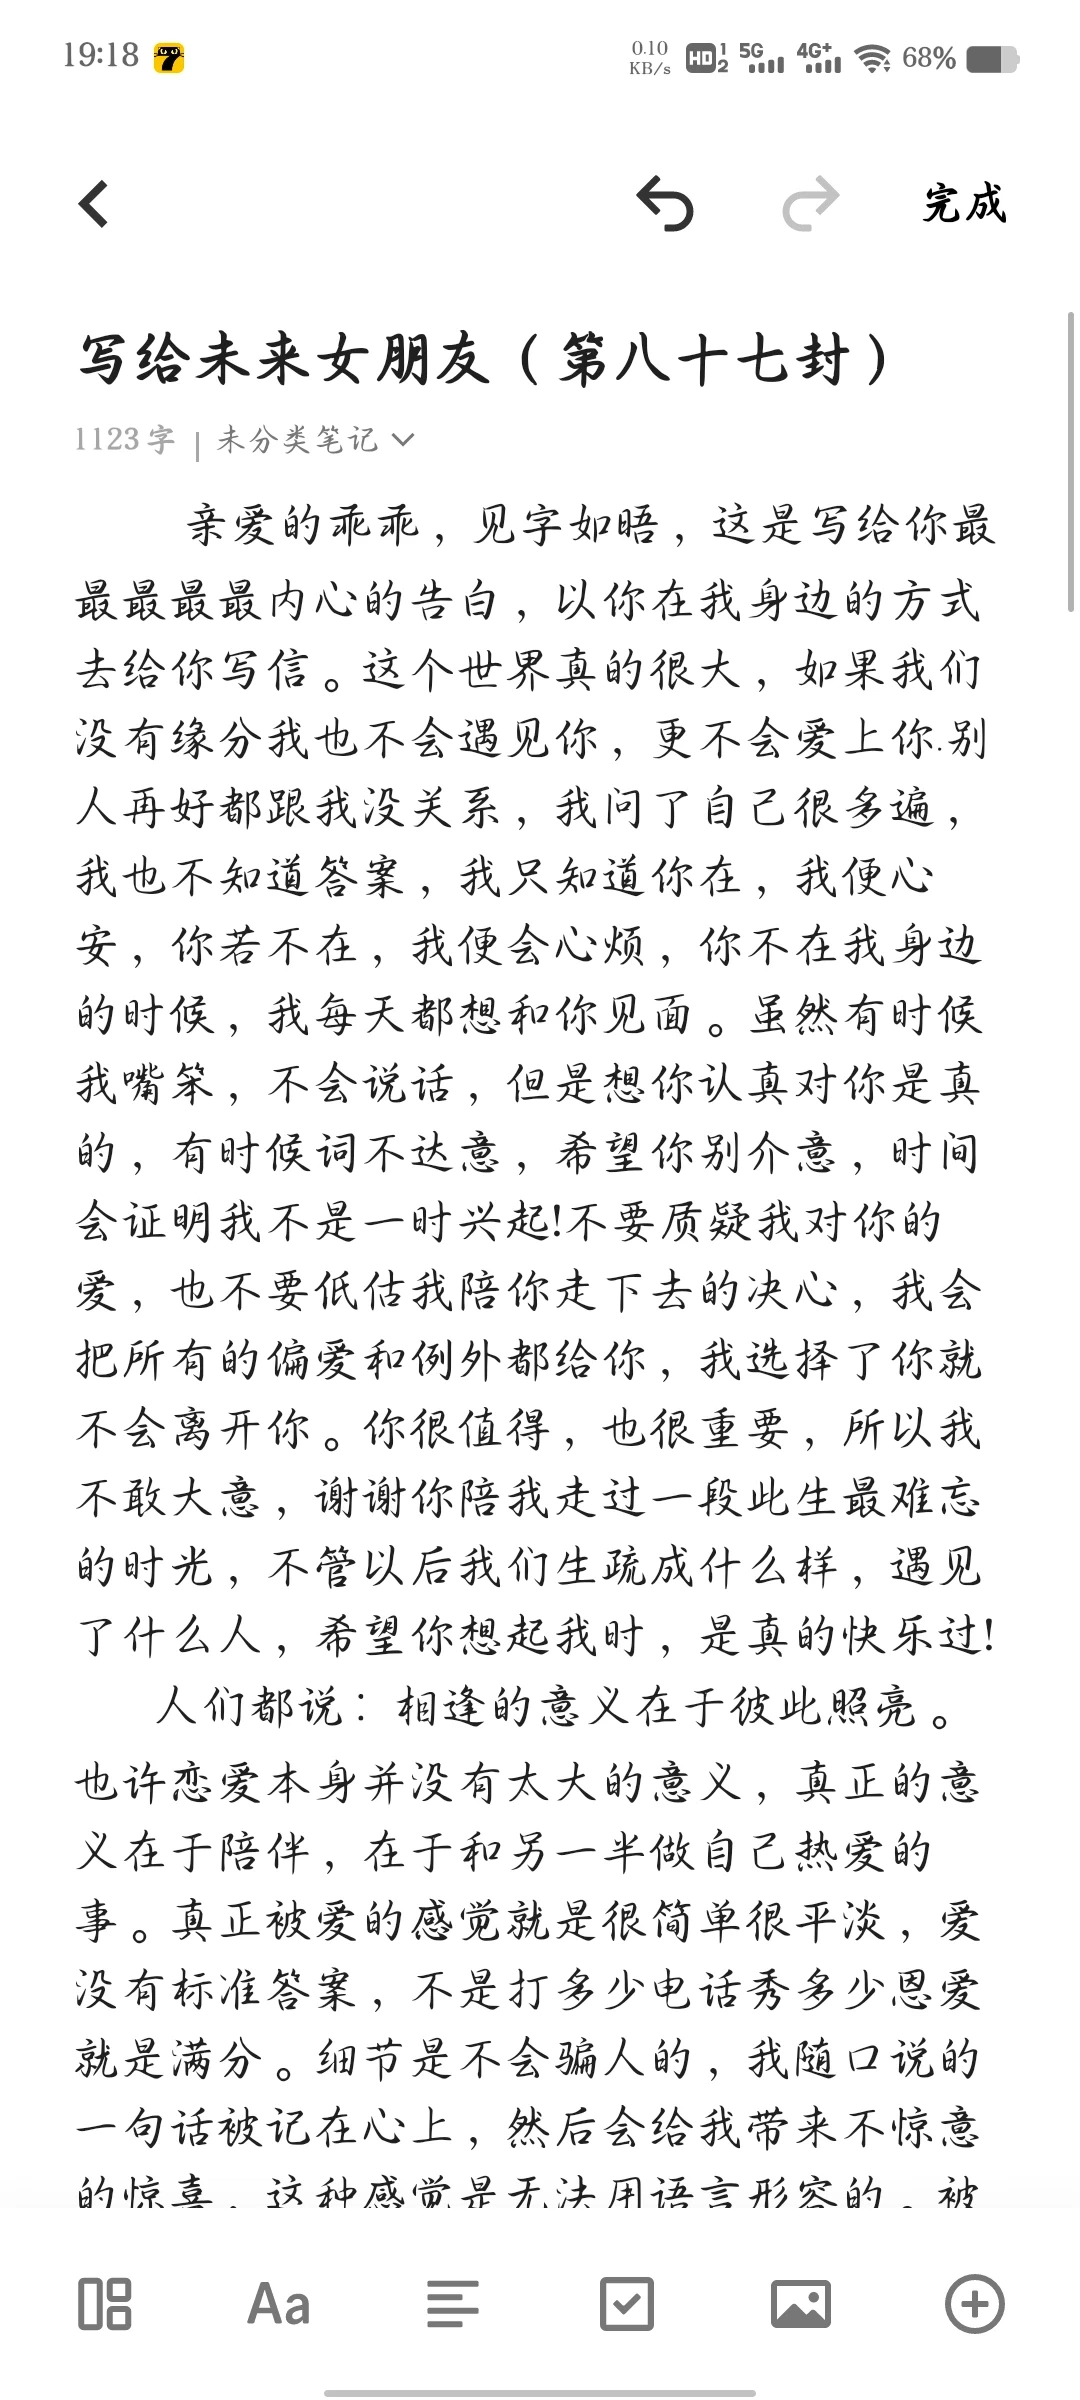 19:18
0.10
KB/s
HD 1 2
5G
4G+
68%
完成
写给未来女朋友（第八十七封）
1123字 | 未分类笔记
亲爱的乖乖，见字如晤，这是写给你最
最最最最内心的告白，以你在我身边的方式
去给你写信。这个世界真的很大，如果我们
没有缘分我也不会遇见你，更不会爱上你.别
人再好都跟我没关系，我问了自己很多遍，
我也不知道答案，我只知道你在，我便心
安，你若不在，我便会心烦，你不在我身边
的时候，我每天都想和你见面。虽然有时候
我嘴笨，不会说话，但是想你认真对你是真
的，有时候词不达意，希望你别介意，时间
会证明我不是一时兴起!不要质疑我对你的
爱，也不要低估我陪你走下去的决心，我会
把所有的偏爱和例外都给你，我选择了你就
不会离开你。你很值得，也很重要，所以我
不敢大意，谢谢你陪我走过一段此生最难忘
的时光，不管以后我们生疏成什么样，遇见
了什么人，希望你想起我时，是真的快乐过!
人们都说：相逢的意义在于彼此照亮。
也许恋爱本身并没有太大的意义，真正的意
义在于陪伴，在于和另一半做自己热爱的
事。真正被爱的感觉就是很简单很平淡，爱
没有标准答案，不是打多少电话秀多少恩爱
就是满分。细节是不会骗人的，我随口说的
一句话被记在心上，然后会给我带来不惊意
的惊喜，这种感觉是无法用语言形容的。被
Aa